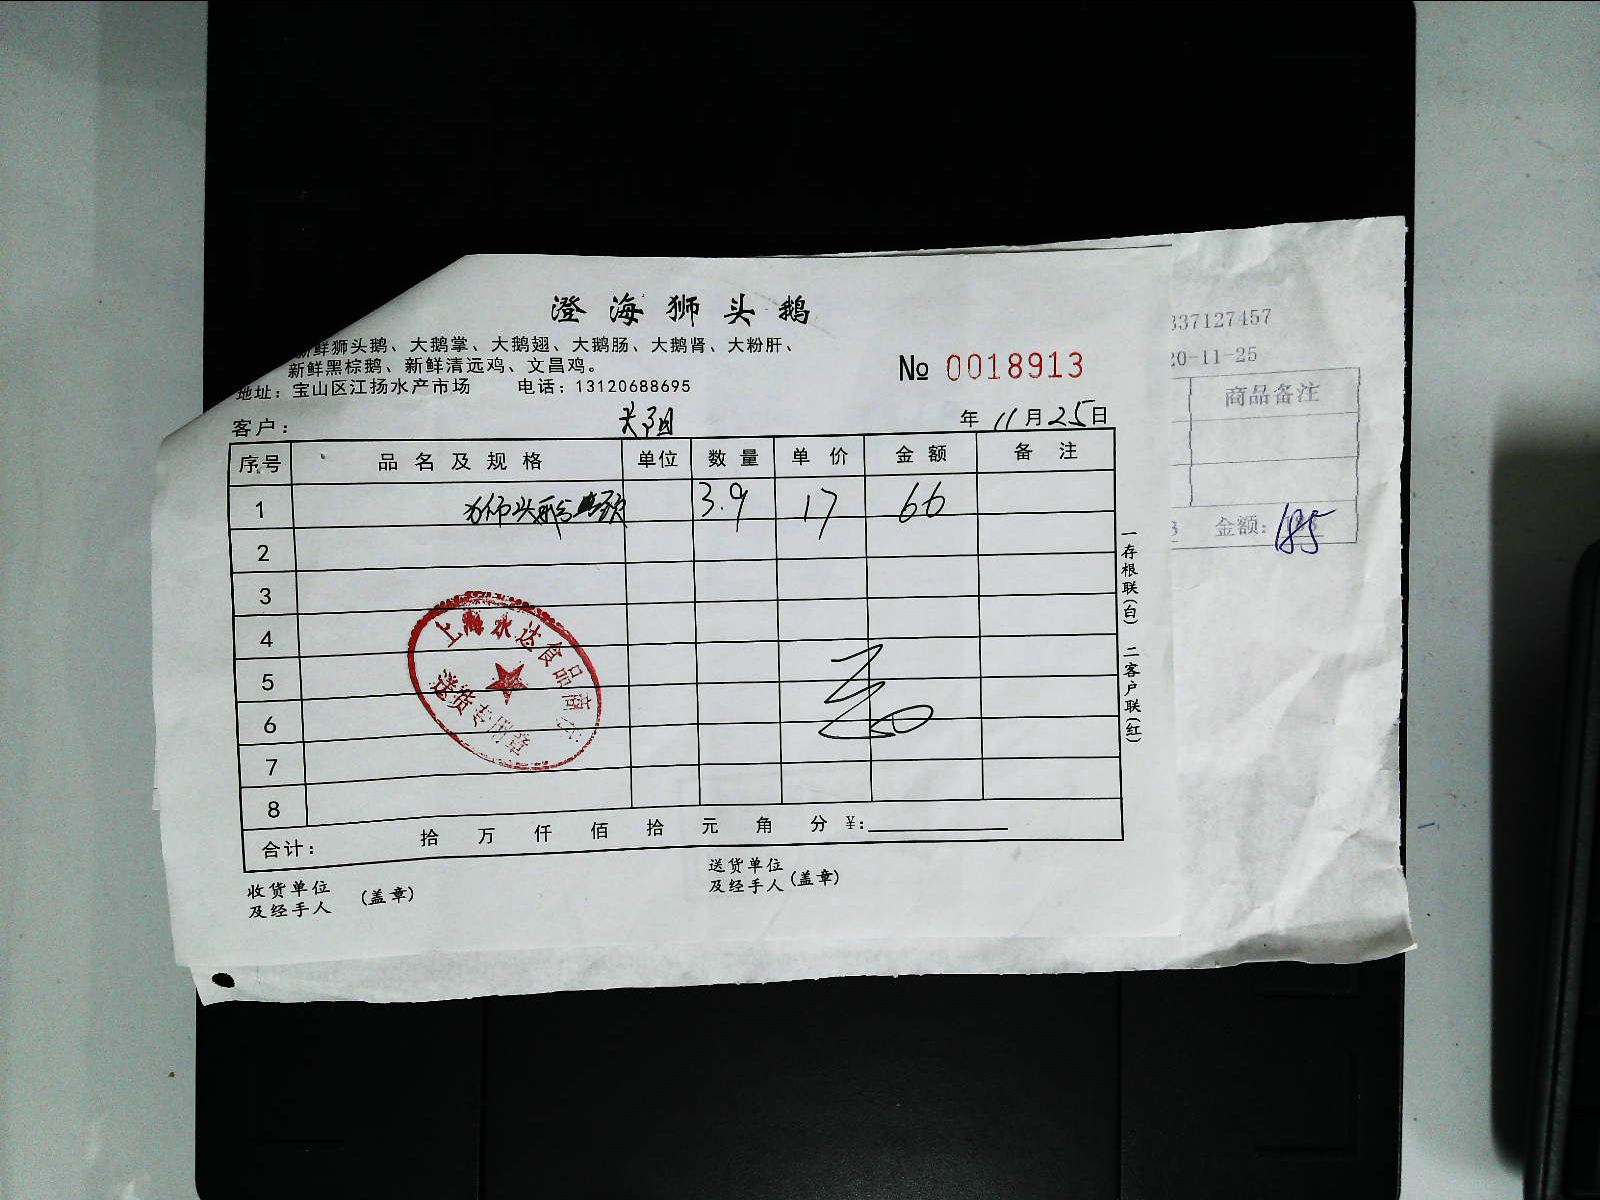 澄海狮头鹅
新鲜狮头鹅、大鹅掌、大鹅翅、大鹅肠、大鹅肾、大粉肝、
新鲜黑棕鹅、新鲜清远鸡、文昌鸡。
地址：宝山区江扬水产市场 电话：13120688695
№ 0018913
客户： 年 11月25日
序号 品名及规格 单位 数量 单价 金额 备注
1 狮头鹅 颈 3.9 17 66
2
3
4
5
6
7
8
合计： 拾 万 仟 佰 拾 元 角 分 ¥:
收货单位
及经手人 (盖章)
送货单位
及经手人 (盖章)
一存根联(白) 二客户联(红)
上海永达食品商
送货专用章
337127457
20-11-25
商品备注
金额: 185